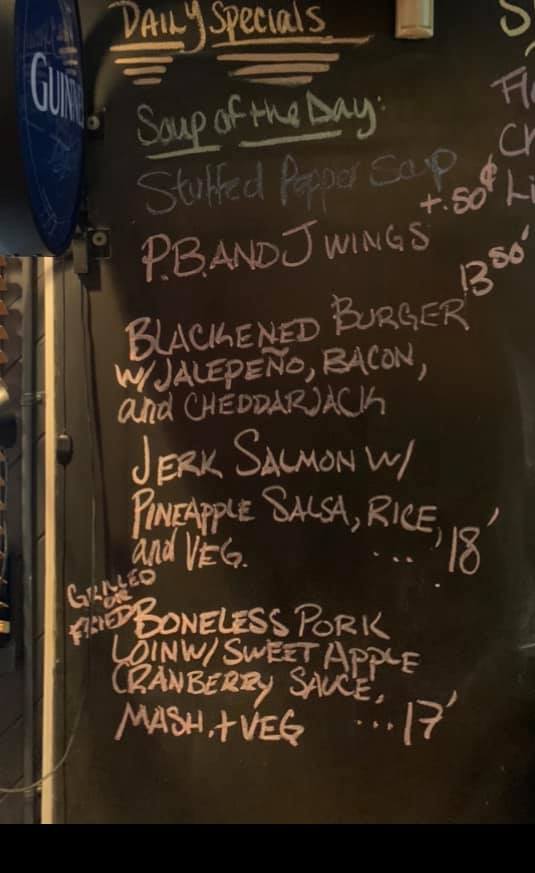 GUINNE
DAILY Specials
Soup of the Day:
Stuffed Pepper Soup
+.50¢
P.B. AND J WINGS
BLACKENED BURGER 13 50
W/ JALEPEÑO, BACON,
and CHEDDARJACK
JERK SALMON W/
PINEAPPLE SALSA, RICE,
and VEG. ... 18
GRILLED
OR
FRIED BONELESS PORK
LOIN W/ SWEET APPLE
CRANBERRY SAUCE,
MASH. + VEG ... 17
S
Fl
Ch
Li